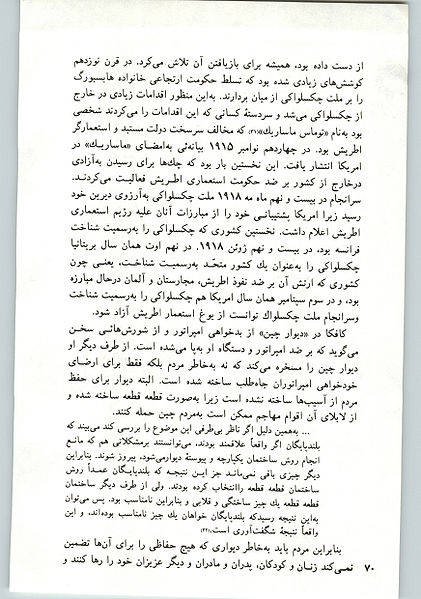 از دست داده بود، همیشه برای بازیافتن آن تلاش می‌کرد. در قرن نوزدهم
کوشش‌های زیادی شده بود که تسلط حکومت ارتجاعی خانواده هابسبورگ
را بر ملت چکسلواکی از میان بردارند. به‌این منظور اقدامات زیادی در خارج
از چکسلواکی می‌شد و سردستهٔ کسانی که این اقدامات را می‌کردند شخصی
بود به‌نام «توماس ماساریك»(۲۱) که مخالف سرسخت دولت مستبد و استعمارگر
اطریش بود. در چهاردهم نوامبر ۱۹۱۵ بیانه‌ئی به‌امضای «ماساریك» در
امریکا انتشار یافت. این نخستین بار بود که چك‌ها برای رسیدن به‌آزادی
درخارج از کشور بر ضد حکومت استعماری اطریش فعالیت می‌کردند.
سرانجام در بیست و نهم ماه مه ۱۹۱۸ ملت چکسلواکی به‌آرزوی دیرین خود
رسید زیرا امریکا پشتیبانی خود را از مبارزات آنان علیه رژیم استعماری
اطریش اعلام داشت. نخستین کشوری که چکسلواکی را به‌رسمیت شناخت
فرانسه بود، در بیست و نهم ژوئن ۱۹۱۸. در نهم اوت همان سال بریتانیا
چکسلواکی را به‌عنوان یك کشور متحّد به‌رسمیت شناخت، یعنی چون
کشوری که ارتش آن بر ضد نفوذ اطریش، مجارستان و آلمان درحال مبارزه
بود، و در سوم سپتامبر همان سال امریکا هم چکسلواکی را به‌رسمیت شناخت
وسرانجام ملت چکسلواك توانست از یوغ استعمار اطریش آزاد شود.
کافکا در «دیوار چین» از بدخواهی امپراتور و از شورش‌هائی سخن
می‌گوید که بر ضد امپراتور و دستگاه او به‌پا می‌شده است. از طرف دیگر او
دیوار چین را مسخره می‌کند که نه به‌خاطر مردم بلکه فقط برای ارضای
خودخواهی امپراتوران جاه‌طلب ساخته شده است. البته دیوار برای حفظ
مردم از آسیب‌ها ساخته نشده است زیرا به‌صورت قطعه قطعه ساخته شده و
از لابلای آن اقوام مهاجم ممکن است به‌مردم چین حمله کنند.
... به‌همین دلیل اگر ناظر بی‌طرفی این موضوع را بررسی کند می‌بیند که
بلندپایگان اگر واقعاً علاقمند بودند، می‌توانستند برمشکلاتی هم که مانع
انجام روش ساختمان یکپارچه و پیوستهٔ دیوارمی‌شود، پیروز شوند. بنابراین
دیگر چیزی باقی نمی‌ماند جز این نتیجه که بلندپایگان عمداً روش
ساختمان قطعه قطعه راانتخاب کرده بودند. ولی از طرف دیگر ساختمان
قطعه قطعه یك چیز ساختگی و قلابی و بنابراین نامناسب بود. پس می‌توان
به‌این نتیجه رسیدکه بلندپایگان خواهان یك چیز نامناسب بوده‌اند، و این
واقعاً نتیجهٔ شگفت‌آوری است.(۲۲)
بنابراین مردم باید به‌خاطر دیواری که هیچ حفاظی را برای آن‌ها تضمین
نمی‌کند زنان و کودکان، پدران و مادران و دیگر عزیزان خود را رها کنند و
۷۰